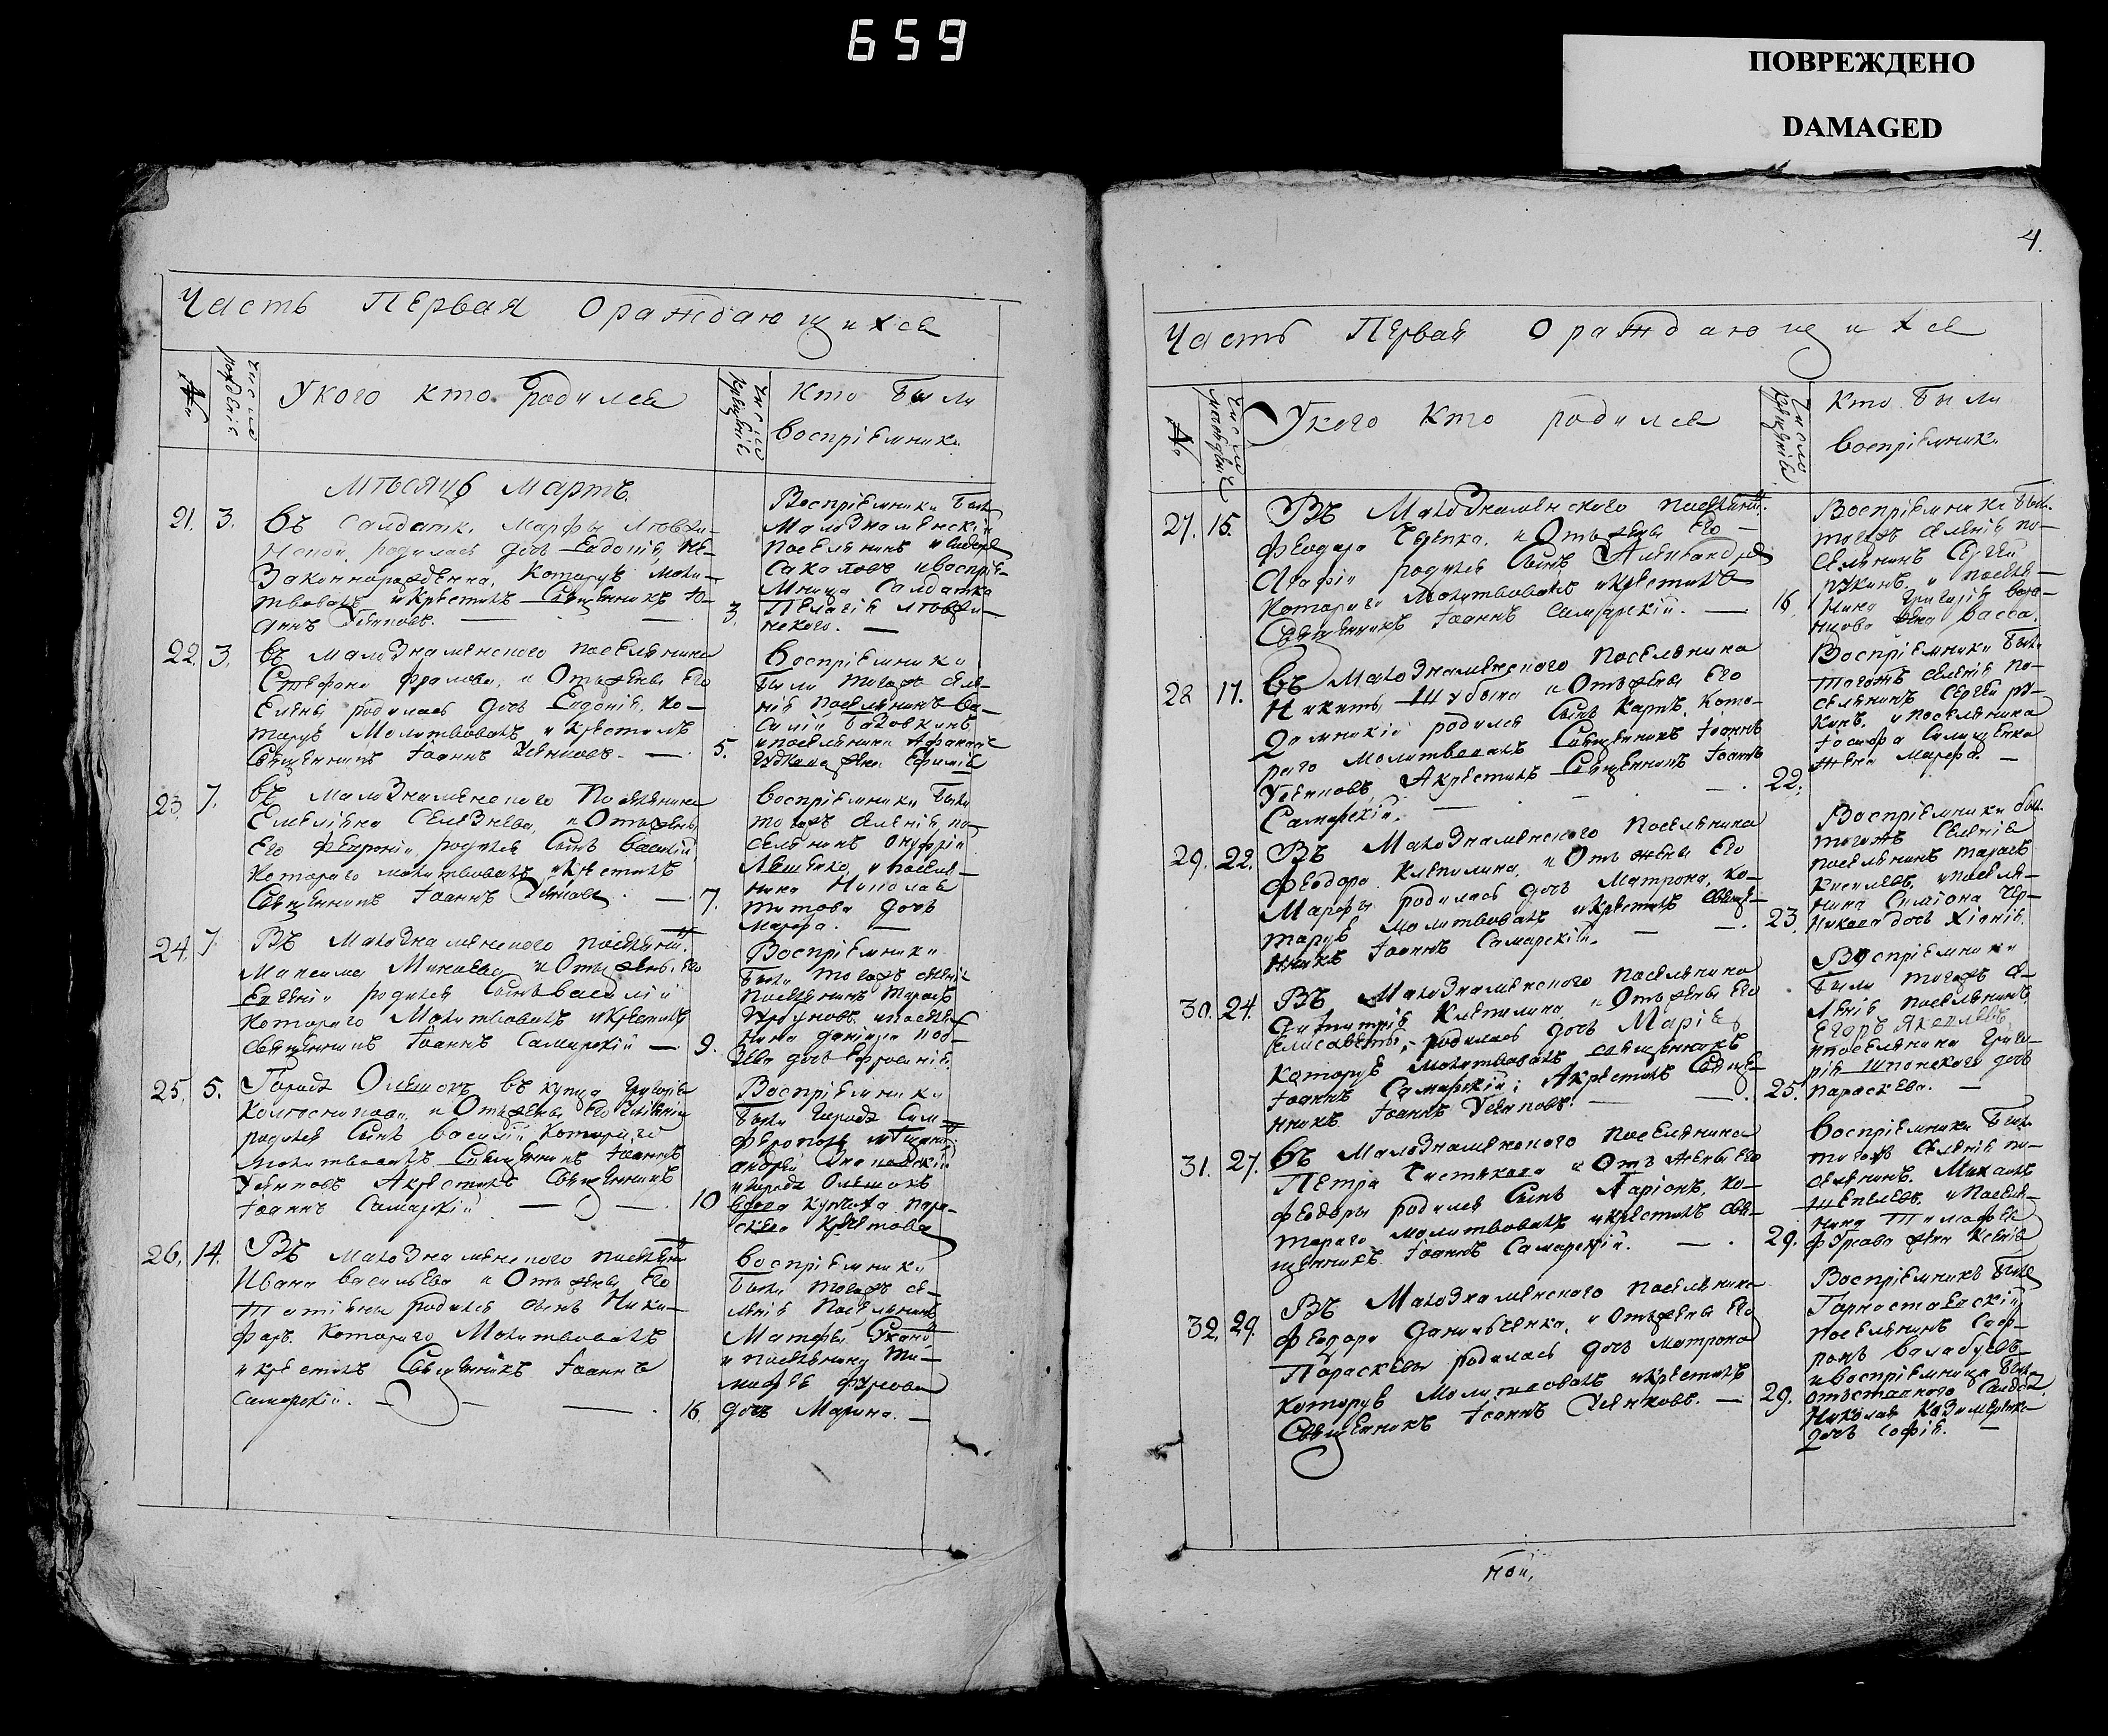 659
ПОВРЕЖДЕНО
DAMAGED
Часть Первая О раждающихся
№
число рождения
У кого кто родился
число крещения
Кто были
восприемники
Мѣсяцъ Мартъ.
21. 3.
въ Салдатки Марфы
родилась дочь Евдокія, не-
законнорожденна, которую моли-
твовалъ и крестилъ Священникъ Іо-
аннъ Устиновъ.
3.
Восприемники были
Малознаменскій
поселянинъ
и воспріе-
мница Салдатка
Пелагія
22. 3.
въ Малознаменского поселянина
Стефана Фролова, и отъ жены его
Елены родилась дочь Евдокія, ко-
торую молитвовалъ и крестилъ
Священникъ Іоаннъ Устиновъ.
5.
Восприемники
были тогожъ селе-
нія поселянинъ Ва-
силій
и поселянина
жена Ефимія
23. 7.
въ Малознаменского поселянина
Емеліяна Селезнева, и отъ жены
его Февроніи родился сынъ Василій
котораго молитвовалъ и крестилъ
Священникъ Іоаннъ Устиновъ.
7.
Восприемники были
тогожъ селенія по-
селянинъ Онуфрій
и поселя-
нина Николая
Титова дочь
Марфа.
24. 7.
Въ Малознаменского поселянина
Максима Минаева и отъ жены его
Евгеніи родился сынъ Василій
котораго молитвовалъ и крестилъ
священникъ Іоаннъ Самарскій
9.
Восприемники
были тогожъ селенія
поселянинъ Тарасъ
и поселя-
нина Даніила
дочь Ефросинія.
25. 5.
Города Олешокъ въ купца Григорія
и отъ жены его
родился сынъ Василій котораго
молитвовалъ Священникъ Іоаннъ
Устиновъ а крестилъ Священникъ
Іоаннъ Самарскій
10
Восприемники
были города Сим-
ферополя
Андрей
и города Олешокъ
вдова купчиха Пара-
скева
26. 14.
Въ Малознаменского поселянина
Ивана Васильева и отъ жены его
Татіяны родился сынъ Ники-
форъ. котораго молитвовалъ
и крестилъ Священникъ Іоаннъ
Самарскій.
16.
Восприемники
были тогожъ се-
ленія поселянинъ
Матфей
и поселянина Ти-
мофея Фурсова
дочь Марина.
4.
Часть Первая О раждающихся
№
У кого кто родился
число крещенія
Кто были
восприемники
27. 15.
Въ Малознаменского поселянина
Феодора и отъ жены его
Агафіи родился сынъ Александръ
котораго молитвовалъ и крестилъ
Священникъ Іоаннъ Самарскій.
16.
Восприемники были
тогожъ селенія по-
селянинъ Сергей
и поселя-
нина Григорія
жена Васса.
28 17.
Въ Малознаменского поселянина
Никиты Шубина и отъ жены его
родился сынъ Карпъ. кото-
раго молитвовалъ Священникъ Іоаннъ
Устиновъ, а крестилъ Священникъ Іоаннъ
Самарскій.
22.
Восприемники были
тогожъ селенія по-
селянинъ Сергей
и поселянина
Іосифа
жена Марфа.
29. 22.
Въ Малознаменского поселянина
Феодора Клепилина, и отъ жены его
Марфы родилась дочь Матрона, ко-
торую молитвовалъ и крестилъ священ-
никъ Іоаннъ Самарскій.
23.
Восприемники были
тогожъ селенія
поселянинъ Тарасъ
Киселевъ, и поселя-
нина Симіона
дочь Хіонія.
30. 24.
Въ Малознаменского поселянина
Димитрія Клепилина и отъ жены его
Елисаветы, родилась дочь Марія
которую молитвовалъ священникъ
Іоаннъ Самарскій; а крестилъ Священ-
никъ Іоаннъ Устиновъ.
25.
Восприемники
были тогожъ се-
ленія поселянинъ
Егоръ Яковлевъ
и поселянина Григо-
рія дочь
Параскева.
31. 27.
въ Малознаменского поселянина
Петра Чистякова и отъ жены его
Феодоры родился сынъ Ларіонъ, ко-
тораго молитвовалъ и крестилъ свя-
щенникъ Іоаннъ Самарскій.
29.
Восприемники были
тогожъ селенія по-
селянинъ Михаилъ
Шепелевъ, и поселя-
нина Тимофея
Фурсова жена Ксенія
32. 29.
Въ Малознаменского поселянина
Феодора Данильченка, и отъ жены его
Параскевы родилась дочь Матрона
которую молитвовалъ и крестилъ
Священникъ Іоаннъ Устиновъ.
29.
Восприемникъ былъ
Горностаевскій
поселянинъ Соф-
ронъ Балабуевъ
и восприемница была
отставного Салдата
Николая
дочь Софія.